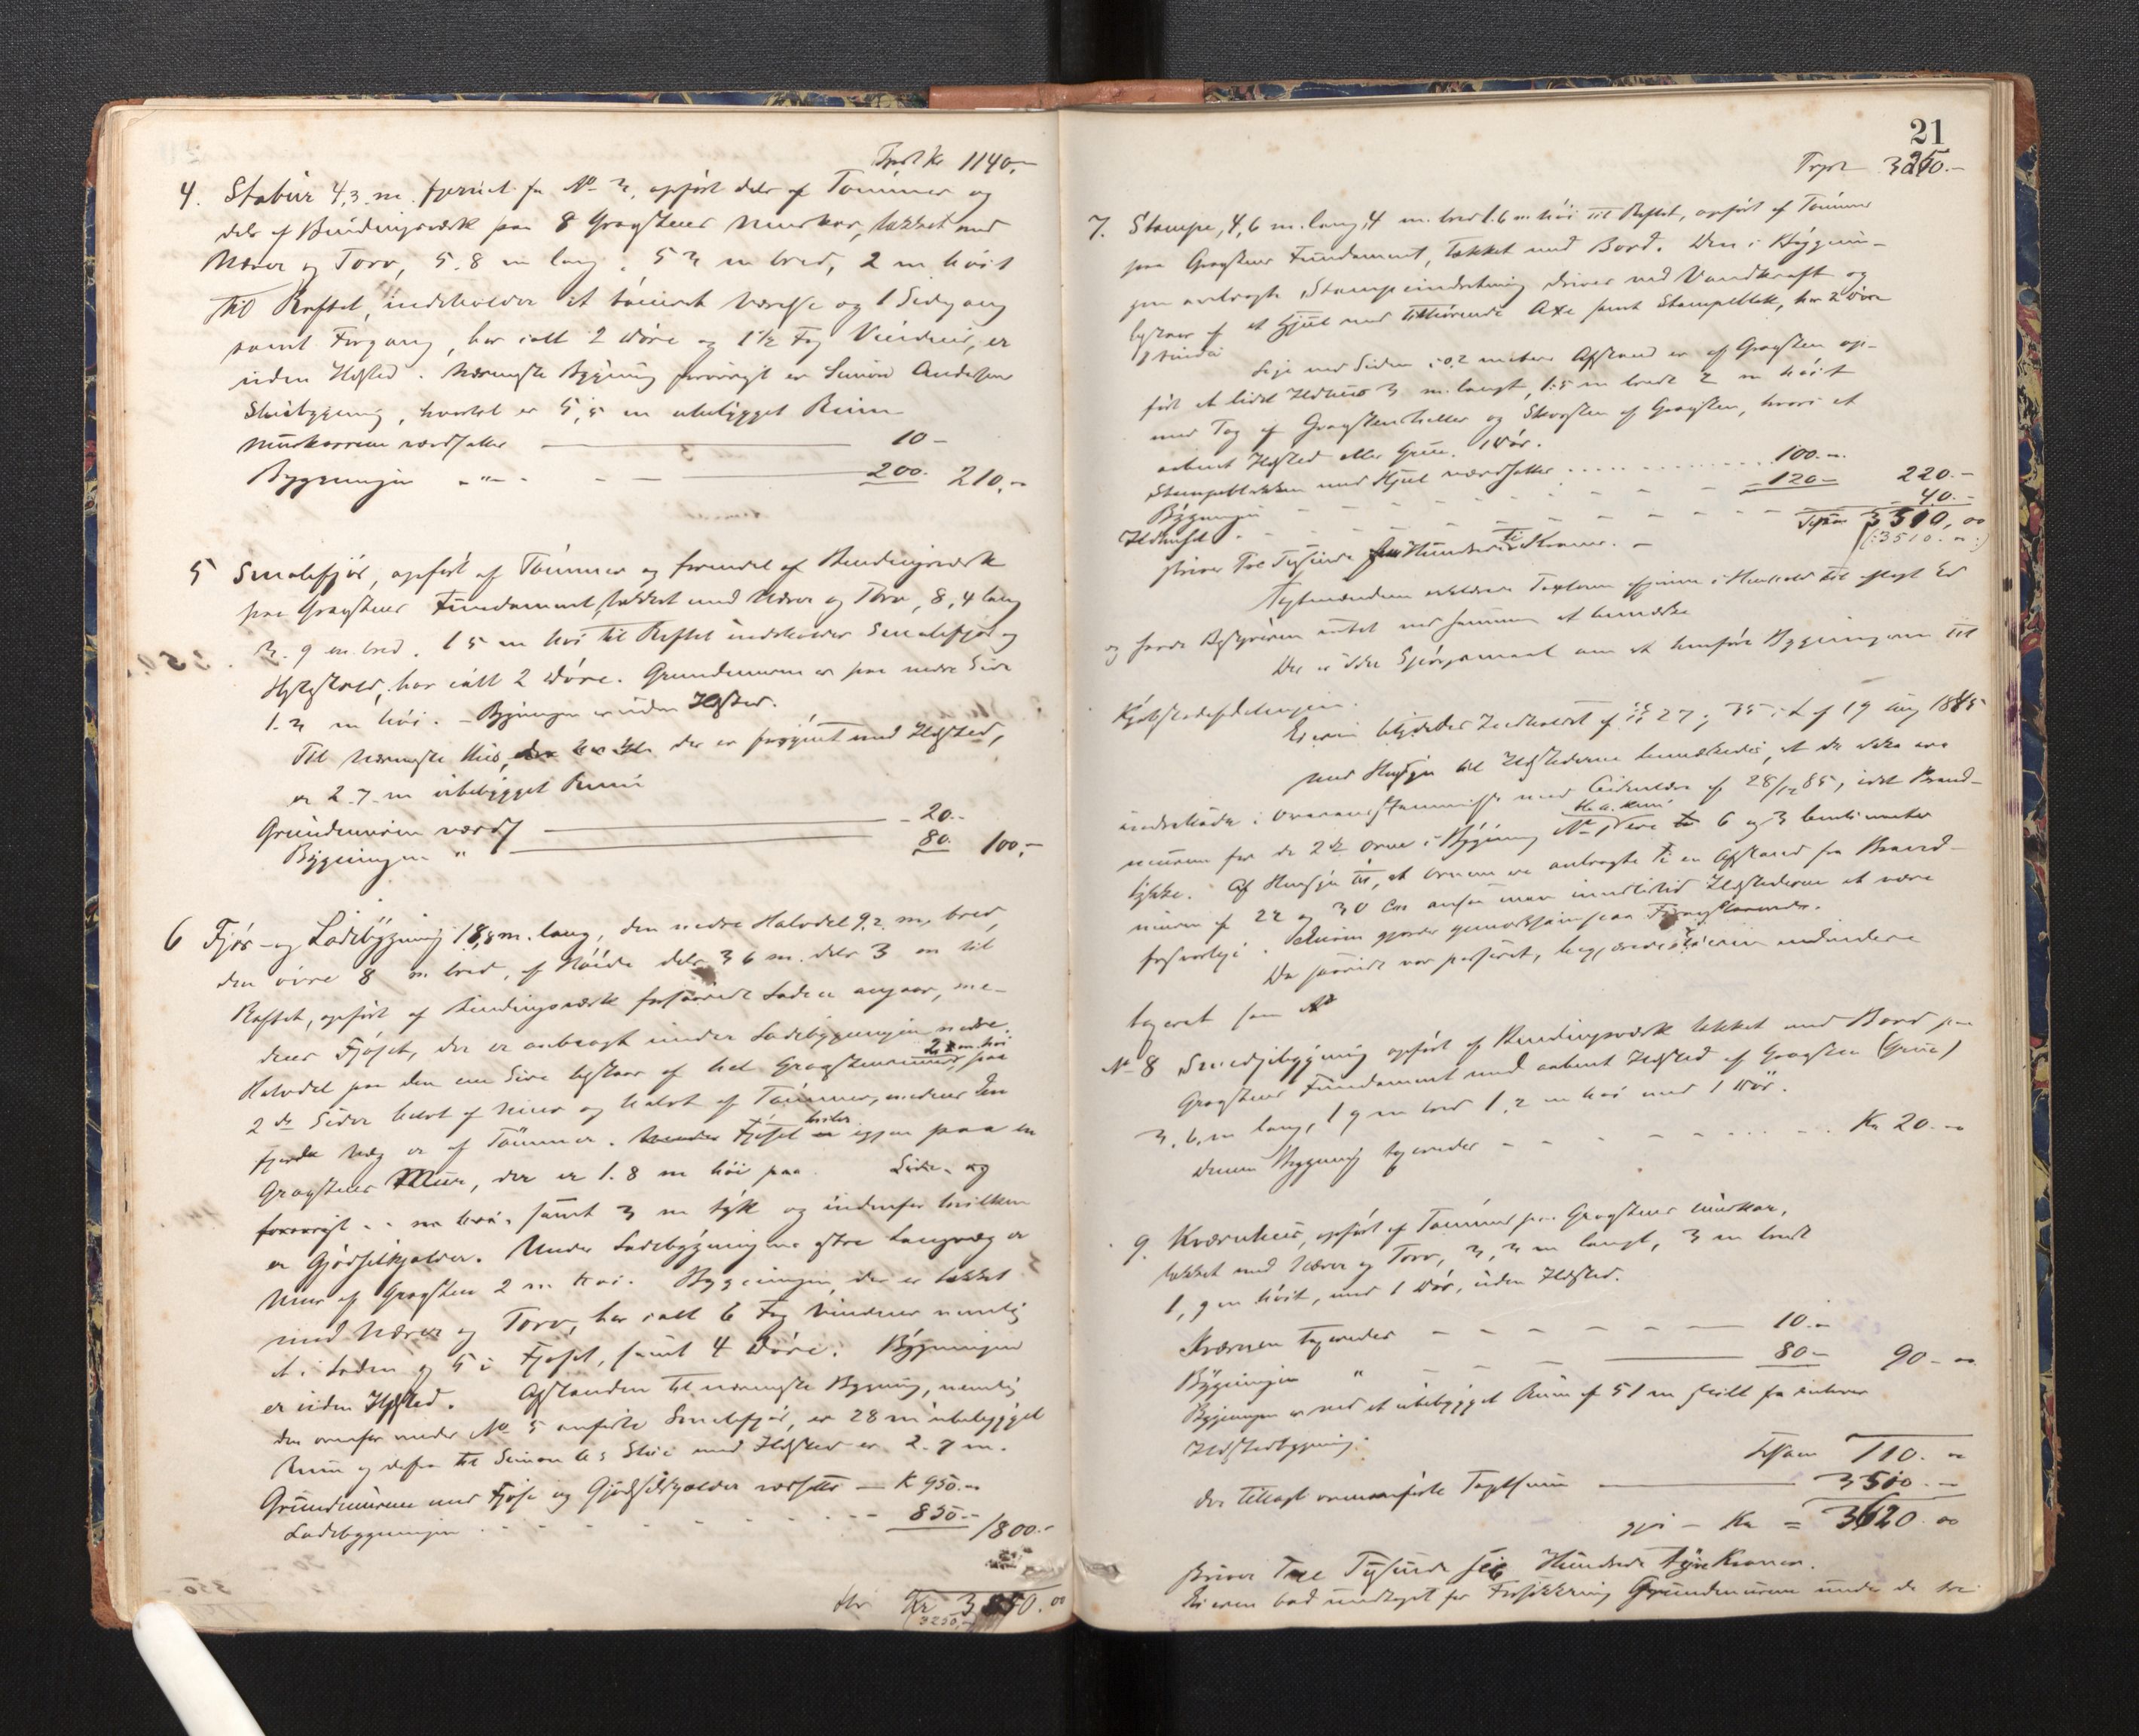 Trpt Kr 1140,-
4. Stabur 4,3 m. fjernet fra No 3, opført dels af Tømmer og
dels af Bindingsværk paa 8 Graastens Murkar, tækket med
Næver og Torv, 5,8 m lang, 5 3 m bred, 2 m høit
til Raftet, indeholder et tømret Værelse og 1 Sidegang
samt Forgang, har ialt 2 Døre og 1½ Fag Vinduer, er
uden Ildsted. Nærmeste Bygning forøvrigt er Simon Andersens
Stuebygning, hvortil er 5,5 m ubebygget Rum
Murkarrene værdsattes 10 -
Bygningen - " - 200. 210,-
5 Smalefjøs, opført af Tømmer og forendel af Bindingsværk
paa Graastens Fundament, tækket med Næver og Torv, 8,4 lang
3.9 m bred. 1 5 m høi til Raftet indeholder Smalefjøs og
har ialt 2 Døre. Grundmuren er paa nedre Side
1.3 m høi. - Bygningen er uden Ildsted.
Til nærmeste Hus, der er forsynet med Ildsted,
er 2.7 m ubebygget Rum
Grundmuren værds 20.-
Bygningen " 80. 100,-
6 Fjøs- og Ladebygning 18,8 m. lang, den nedre Halvdel 9,2 m. bred,
den øvre 8 m bred, af Høide dels 3 6 m. dels 3 m til
Raftet, opført af Bindingsværk forsaavidt Laden angaar, me-
dens Fjøset, der er anbragt under Ladebygningen nedre
Halvdel paa den ene Side bestaar af hel Graastensmur, 2 m høi paa
2 de Sider halvt af Mur og halvt af Tømmer, medens den
fjerde Væg er af Tømmer. Fjøset hviler igjen paa en
Graastens Mur, der er 1.8 m høi paa Side- og
forøvrigt - - m høi, samt 3 m tyk og indenfor hvilken
er Gjødselkjælder. Under Ladebygningens østre Langvæg er
Mur af Graasten 2 m høi. Bygningen, der er tækket
med Næver og Torv, har ialt 6 Fag Vinduer nemlig
et i Laden og 5 i Fjøset, samt 4 Døre. Bygningen
er uden Ildsted. Afstanden til nærmeste Bygning, nemlig
den ovenfor under No 5 anførte Smalefjøs, er 28 m ubebygget
Rum og derfra til Simon A s Stue med Ildsted er 2.7 m.
Grundmuren med Fjøs og Gjødselkjælder værdsattes - K 950.-
Ladebygningen 850.- 1800.-
Kr 3250.00
(3250,-)
21
Trpt 3250.-
7. Stampe, 4,6 m. lang, 4 m. bred 1.6 m høi til Raftet, opført af Tømmer
paa Graastens Fundament, tækket med Bord. Den i Bygnin-
gen anbragte Stampeindretning drives ved Vandkraft og
bestaar af et Hjul med tilhørende Axe samt Stampeblok, har 2 Døre
1 Vindu
Lige ved Siden i 0,2 meters Afstand er af Graasten op-
ført et lidet Ildhus 3 m. langt, 1.5 m bredt 2 m høit
med Tag af Graastensheller og Skorsten af Graasten, hvori et
aabent Ildsted eller Grue. 1 Dør.
Stampeblokken med Hjul værdsattes 100.-
Bygningen 120.- 220.-
Ildhuset 40.-
Tilsam 3510,00
(:3510.-:)
skriver Tre Tusinde fem Hundrede ti Kroner. -
Taxtmændene erklærede Taxterne afgivne i Henhold til aflagt Ed
og havde Bestyreren intet ved samme at bemærke
Der er ikke Spørgsmaal om at henføre Bygningerne til
Kjøbstadafdelingen.
Eieren betydedes Indholdet af §§ 27 og 35 i L af 19 Aug 1845
Med Hensyn til Ildstederne bemærkedes, at de ikke ere
indrettede i Overensstemmelse med Cirkulære af 28/12 85, idet Brand-
muren for de 2de Ovne i Bygning No 1 ere 6 og 3 Centimeter
tykke. Af Hensyn til, at Ovnene ere anbragte i en Afstand fra Brand-
muren af 22 og 30 Cm anser man imidlertid Ildstederne at være
forsvarlige. Eieren gjordes opmerksom paa
Da saavidt var passeret, begjærede Eieren endvidere
taxeret som No
No 8 Smedjebygning opført af Bindingsværk tækket med Bord paa
Graastens Fundament med aabent Ildsted af Graasten (Grue)
3,6 m lang, 1 9 m bred 1,2 m høi med 1 Dør.
Denne Bygning taxeredes Kr 20.-
9. Kværnhus, opført af Tømmer paa Graastens Murkar,
tækket med Næver og Torv, 3,3 m langt, 3 m bredt
1,9 m høit, med 1 Dør, uden Ildsted.
Kværnen taxeredes 10.-
Bygningen " 80 - 90 -
Bygningen er ved et ubebygget Rum af 51 m skilt fra enhver
Ildstedsbygning.
Tilsam 110.-
Der tillagt ovenanførte Taxtsum 3510.-
gjør - Kr = 3620.00
skriver Tre Tusinde sex Hundrede tyve Kroner.
Eieren bad undtaget for Forsikkring Grundmurene under de tre